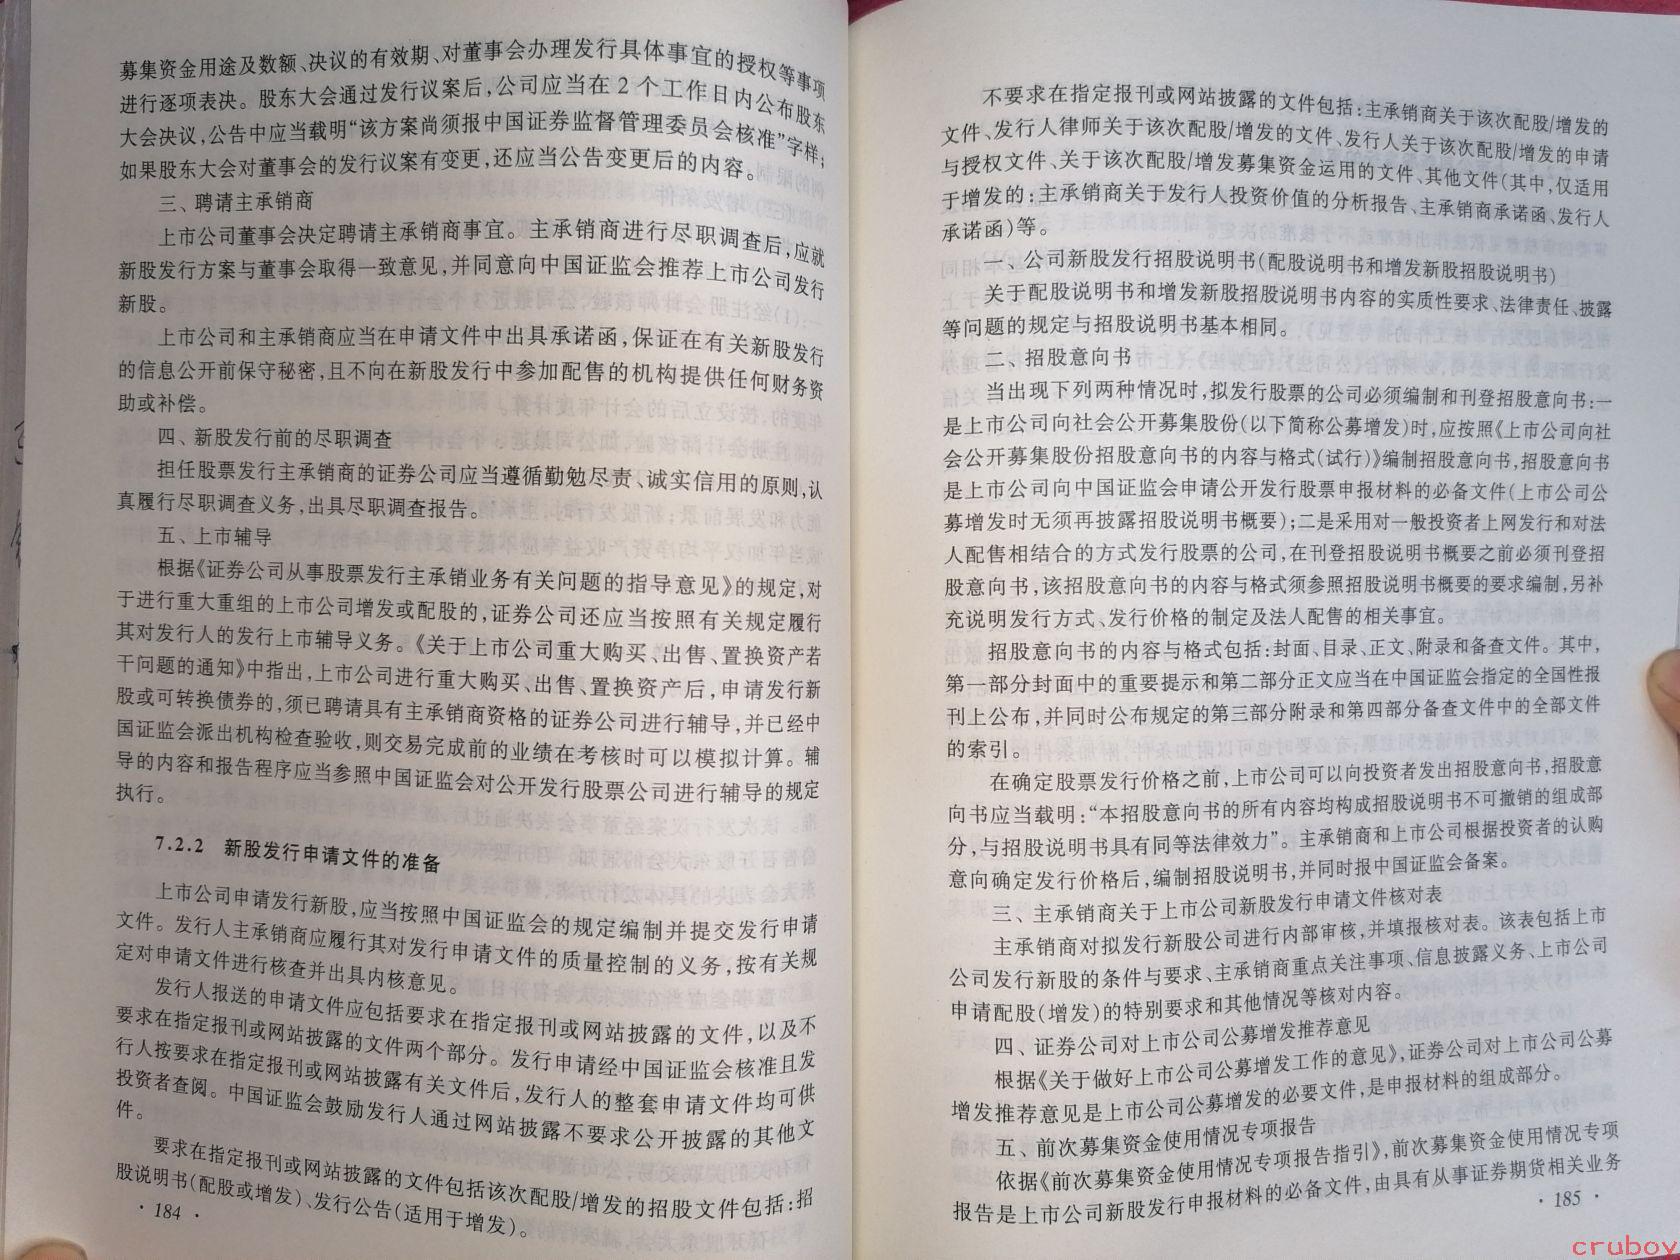 募集资金用途及数额、决议的有效期、对董事会办理发行具体事宜的授权等事项
进行逐项表决。股东大会通过发行议案后,公司应当在2个工作日内公布股东
大会决议,公告中应当载明“该方案尚须报中国证券监督管理委员会核准”字样;
如果股东大会对董事会的发行议案有变更,还应当公告变更后的内容。
三、聘请主承销商
上市公司董事会决定聘请主承销商事宜。主承销商进行尽职调查后,应就
新股发行方案与董事会取得一致意见,并同意向中国证监会推荐上市公司发行
新股。
上市公司和主承销商应当在申请文件中出具承诺函,保证在有关新股发行
的信息公开前保守秘密,且不向在新股发行中参加配售的机构提供任何财务资
助或补偿。
四、新股发行前的尽职调查
担任股票发行主承销商的证券公司应当遵循勤勉尽责、诚实信用的原则,认
真履行尽职调查义务,出具尽职调查报告。
五、上市辅导
根据《证券公司从事股票发行主承销业务有关问题的指导意见》的规定,对
于进行重大重组的上市公司增发或配股的,证券公司还应当按照有关规定履行
其对发行人的发行上市辅导义务。《关于上市公司重大购买、出售、置换资产若
干问题的通知》中指出,上市公司进行重大购买、出售、置换资产后,申请发行新
股或可转换债券的,须已聘请具有主承销商资格的证券公司进行辅导,并已经中
国证监会派出机构检查验收,则交易完成前的业绩在考核时可以模拟计算。辅
导的内容和报告程序应当参照中国证监会对公开发行股票公司进行辅导的规定
执行。
7.2.2 新股发行申请文件的准备
上市公司申请发行新股,应当按照中国证监会的规定编制并提交发行申请
文件。发行人主承销商应履行其对发行申请文件的质量控制的义务,按有关规
定对申请文件进行核查并出具内核意见。
发行人报送的申请文件应包括要求在指定报刊或网站披露的文件,以及不
要求在指定报刊或网站披露的文件两个部分。发行申请经中国证监会核准且发
行人按要求在指定报刊或网站披露有关文件后,发行人的整套申请文件均可供
投资者查阅。中国证监会鼓励发行人通过网站披露不要求公开披露的其他文
件。
要求在指定报刊或网站披露的文件包括该次配股/增发的招股文件包括:招
股说明书(配股或增发)、发行公告(适用于增发)。
· 184 ·
不要求在指定报刊或网站披露的文件包括:主承销商关于该次配股/增发的
文件、发行人律师关于该次配股/增发的文件、发行人关于该次配股/增发的申请
与授权文件、关于该次配股/增发募集资金运用的文件、其他文件(其中,仅适用
于增发的:主承销商关于发行人投资价值的分析报告、主承销商承诺函、发行人
承诺函)等。
一、公司新股发行招股说明书(配股说明书和增发新股招股说明书)
关于配股说明书和增发新股招股说明书内容的实质性要求、法律责任、披露
等问题的规定与招股说明书基本相同。
二、招股意向书
当出现下列两种情况时,拟发行股票的公司必须编制和刊登招股意向书:一
是上市公司向社会公开募集股份(以下简称公募增发)时,应按照《上市公司向社
会公开募集股份招股意向书的内容与格式(试行)》编制招股意向书,招股意向书
是上市公司向中国证监会申请公开发行股票申报材料的必备文件(上市公司公
募增发时无须再披露招股说明书概要);二是采用对一般投资者上网发行和对法
人配售相结合的方式发行股票的公司,在刊登招股说明书概要之前必须刊登招
股意向书,该招股意向书的内容与格式须参照招股说明书概要的要求编制,另补
充说明发行方式、发行价格的制定及法人配售的相关事宜。
招股意向书的内容与格式包括:封面、目录、正文、附录和备查文件。其中,
第一部分封面中的重要提示和第二部分正文应当在中国证监会指定的全国性报
刊上公布,并同时公布规定的第三部分附录和第四部分备查文件中的全部文件
的索引。
在确定股票发行价格之前,上市公司可以向投资者发出招股意向书,招股意
向书应当载明:“本招股意向书的所有内容均构成招股说明书不可撤销的组成部
分,与招股说明书具有同等法律效力”。主承销商和上市公司根据投资者的认购
意向确定发行价格后,编制招股说明书,并同时报中国证监会备案。
三、主承销商关于上市公司新股发行申请文件核对表
主承销商对拟发行新股公司进行内部审核,并填报核对表。该表包括上市
公司发行新股的条件与要求、主承销商重点关注事项、信息披露义务、上市公司
申请配股(增发)的特别要求和其他情况等核对内容。
四、证券公司对上市公司公募增发推荐意见
根据《关于做好上市公司公募增发工作的意见》,证券公司对上市公司公募
增发推荐意见是上市公司公募增发的必要文件,是申报材料的组成部分。
五、前次募集资金使用情况专项报告
依据《前次募集资金使用情况专项报告指引》,前次募集资金使用情况专项
报告是上市公司新股发行申报材料的必备文件,由具有从事证券期货相关业务
· 185 ·
cruboy